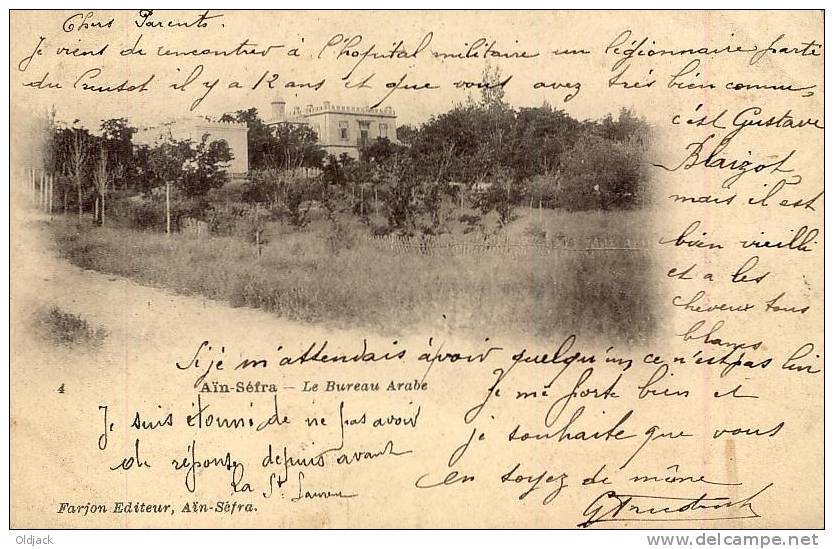 Chers Parents.
Je viens de rencontrer à l'hopital militaire un légionnaire parti
du Creusot il y a 12 ans et que vous avez très bien connu,
c'est Gustave
Blaizot,
mais il est
bien vieilli
et a les
cheveux tous
blancs
Si je m'attendais à voir quelqu'un ce n'est pas lui
4 Aïn-Séfra — Le Bureau Arabe
Je me porte bien et
je souhaite que vous
en soyez de même
Je suis étonné de ne pas avoir
de réponse depuis avant
la St Laurent
Farjon Editeur, Aïn-Séfra.
Oldjack
MORE ON www.delcampe.net